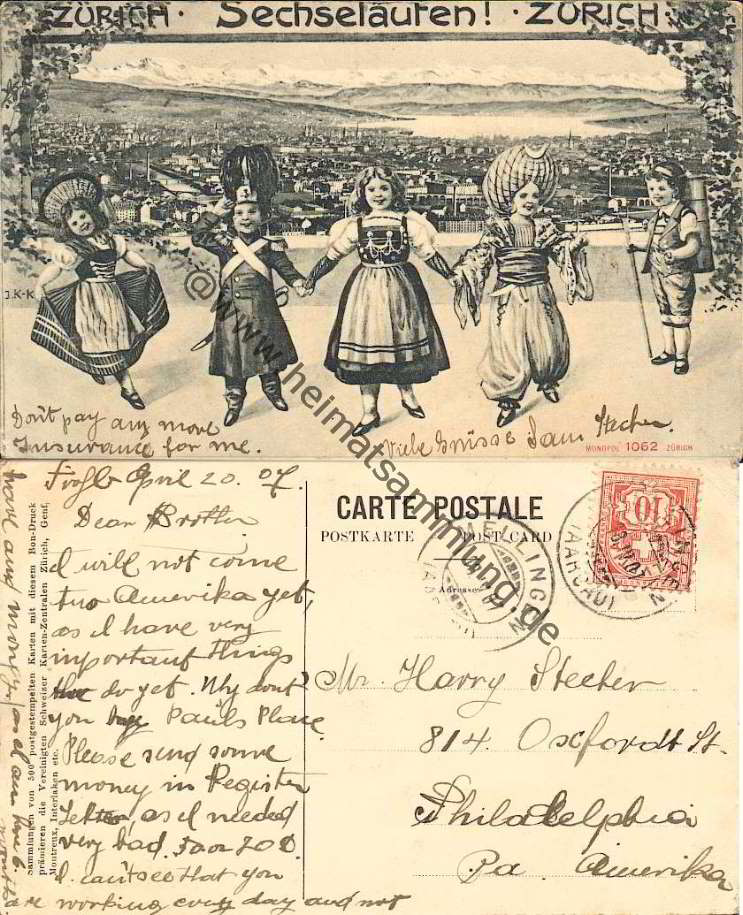 ZÜRICH · Sechseläuten! · ZÜRICH
J.K-K
Don't pay any more
Insurance for me.
Viele Grüsse Sam Stecher.
MONOPOL 1062 ZÜRICH
@www.heimatsammlung.de
April 20. 07.
Dear Brother
I will not come
two Amerika yet,
as I have very
important things
do yet. Why dont
you Pauls Place
Please send some
money in Register
Letter, as I needed
very bad. 50 or 200
I. can't see that you
are working every day and not
have any money, as I am here 6.
months
Sammlungen von 500 postgestempelten Karten mit diesem Bon-Druck
prämieren die Vereinigten Schweizer Karten-Zentralen Zürich, Genf,
Montreux, Interlaken etc.
CARTE POSTALE
POSTKARTE POST CARD
Adresse
MELLINGEN
(AARGAU)
10
Mr. Harry Stecher
814. Oxfordt St.
Philadelphia
Pa. Amerika